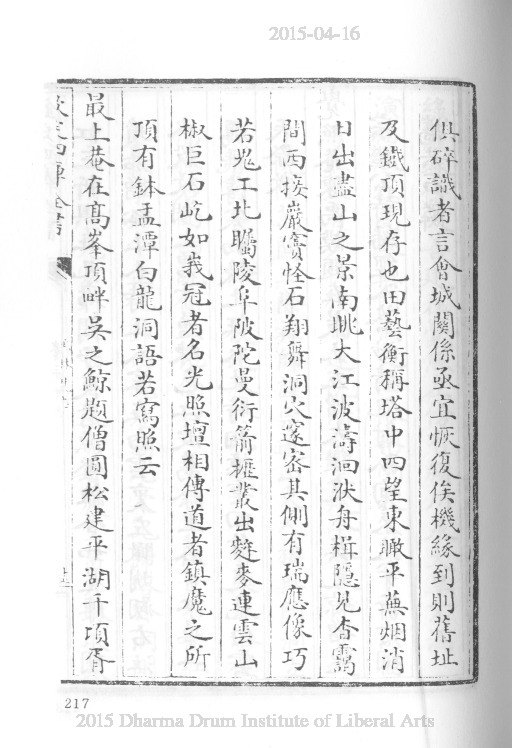 2015-04-16
俱碎識者言會城關係亟宜恢復俟機緣到則舊址
及鐵頂現存也田藝衡稱塔中四望東瞰平蕪烟消
日出盡山之景南眺大江波濤洄洑舟楫隱見杳靄
間西接巖竇怪石翔舞洞穴邃宻其側有瑞應像巧
若鬼工北矚陵阜陂陀曼衍箭櫪叢出麰麥連雲山
椒巨石屹如峩冠者名光照壇相傳道者鎮魔之所
頂有鉢盂潭白龍洞語若寫照云
最上菴在髙峯頂畔吳之鯨題僧圓松建平湖千頃胥
欽定四庫全書
217
2015 Dharma Drum Institute of Liberal Arts